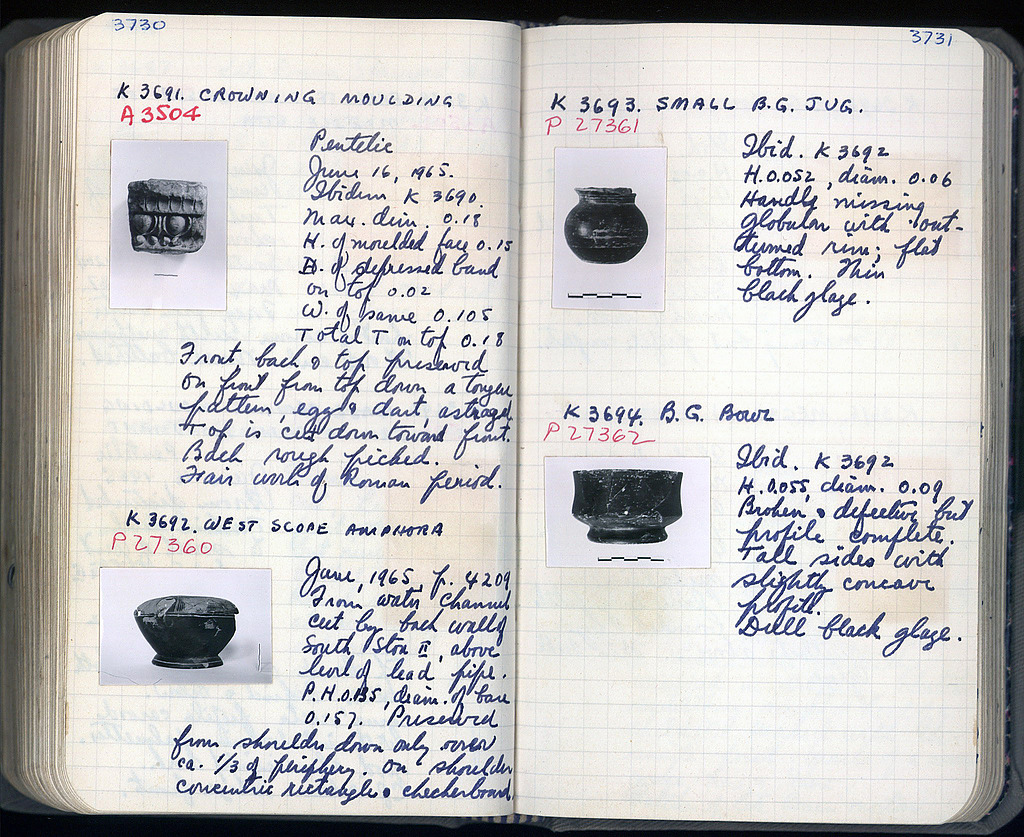 3730
K 3691. CROWNING MOULDING
A 3504
Pentelic
June 16, 1965.
Ibidem K 3690.
Max. dim. 0.18
H. of moulded face 0.15
D. of depressed band
on top 0.02
W. of same 0.105
Total T on top 0.18
Front, back & top preserved
on front from top down, a tongue
pattern, egg & dart, astragal.
Top is cut down toward front.
Back rough picked.
Fair work of Roman period.
K 3692. WEST SLOPE AMPHORA
P 27360
June, 1965, p. 4209
From water channel
cut by back wall of
South Stoa II, above
level of lead pipe.
P.H. 0.135, diam. of base
0.157. Preserved
from shoulder down only over
ca. 1/3 of periphery. On shoulder
concentric rectangle & checkerboard.
3731
K 3693. SMALL B.G. JUG.
P 27361
Ibid. K 3692
H. 0.052, diam. 0.06
Handle missing
Globular with out-
turned rim; flat
bottom. Thin
black glaze.
K 3694. B.G. BOWL
P 27362
Ibid. K 3692
H. 0.055, diam. 0.09
Broken & defective but
profile complete.
Tall sides with
slightly concave
profile.
Dull black glaze.